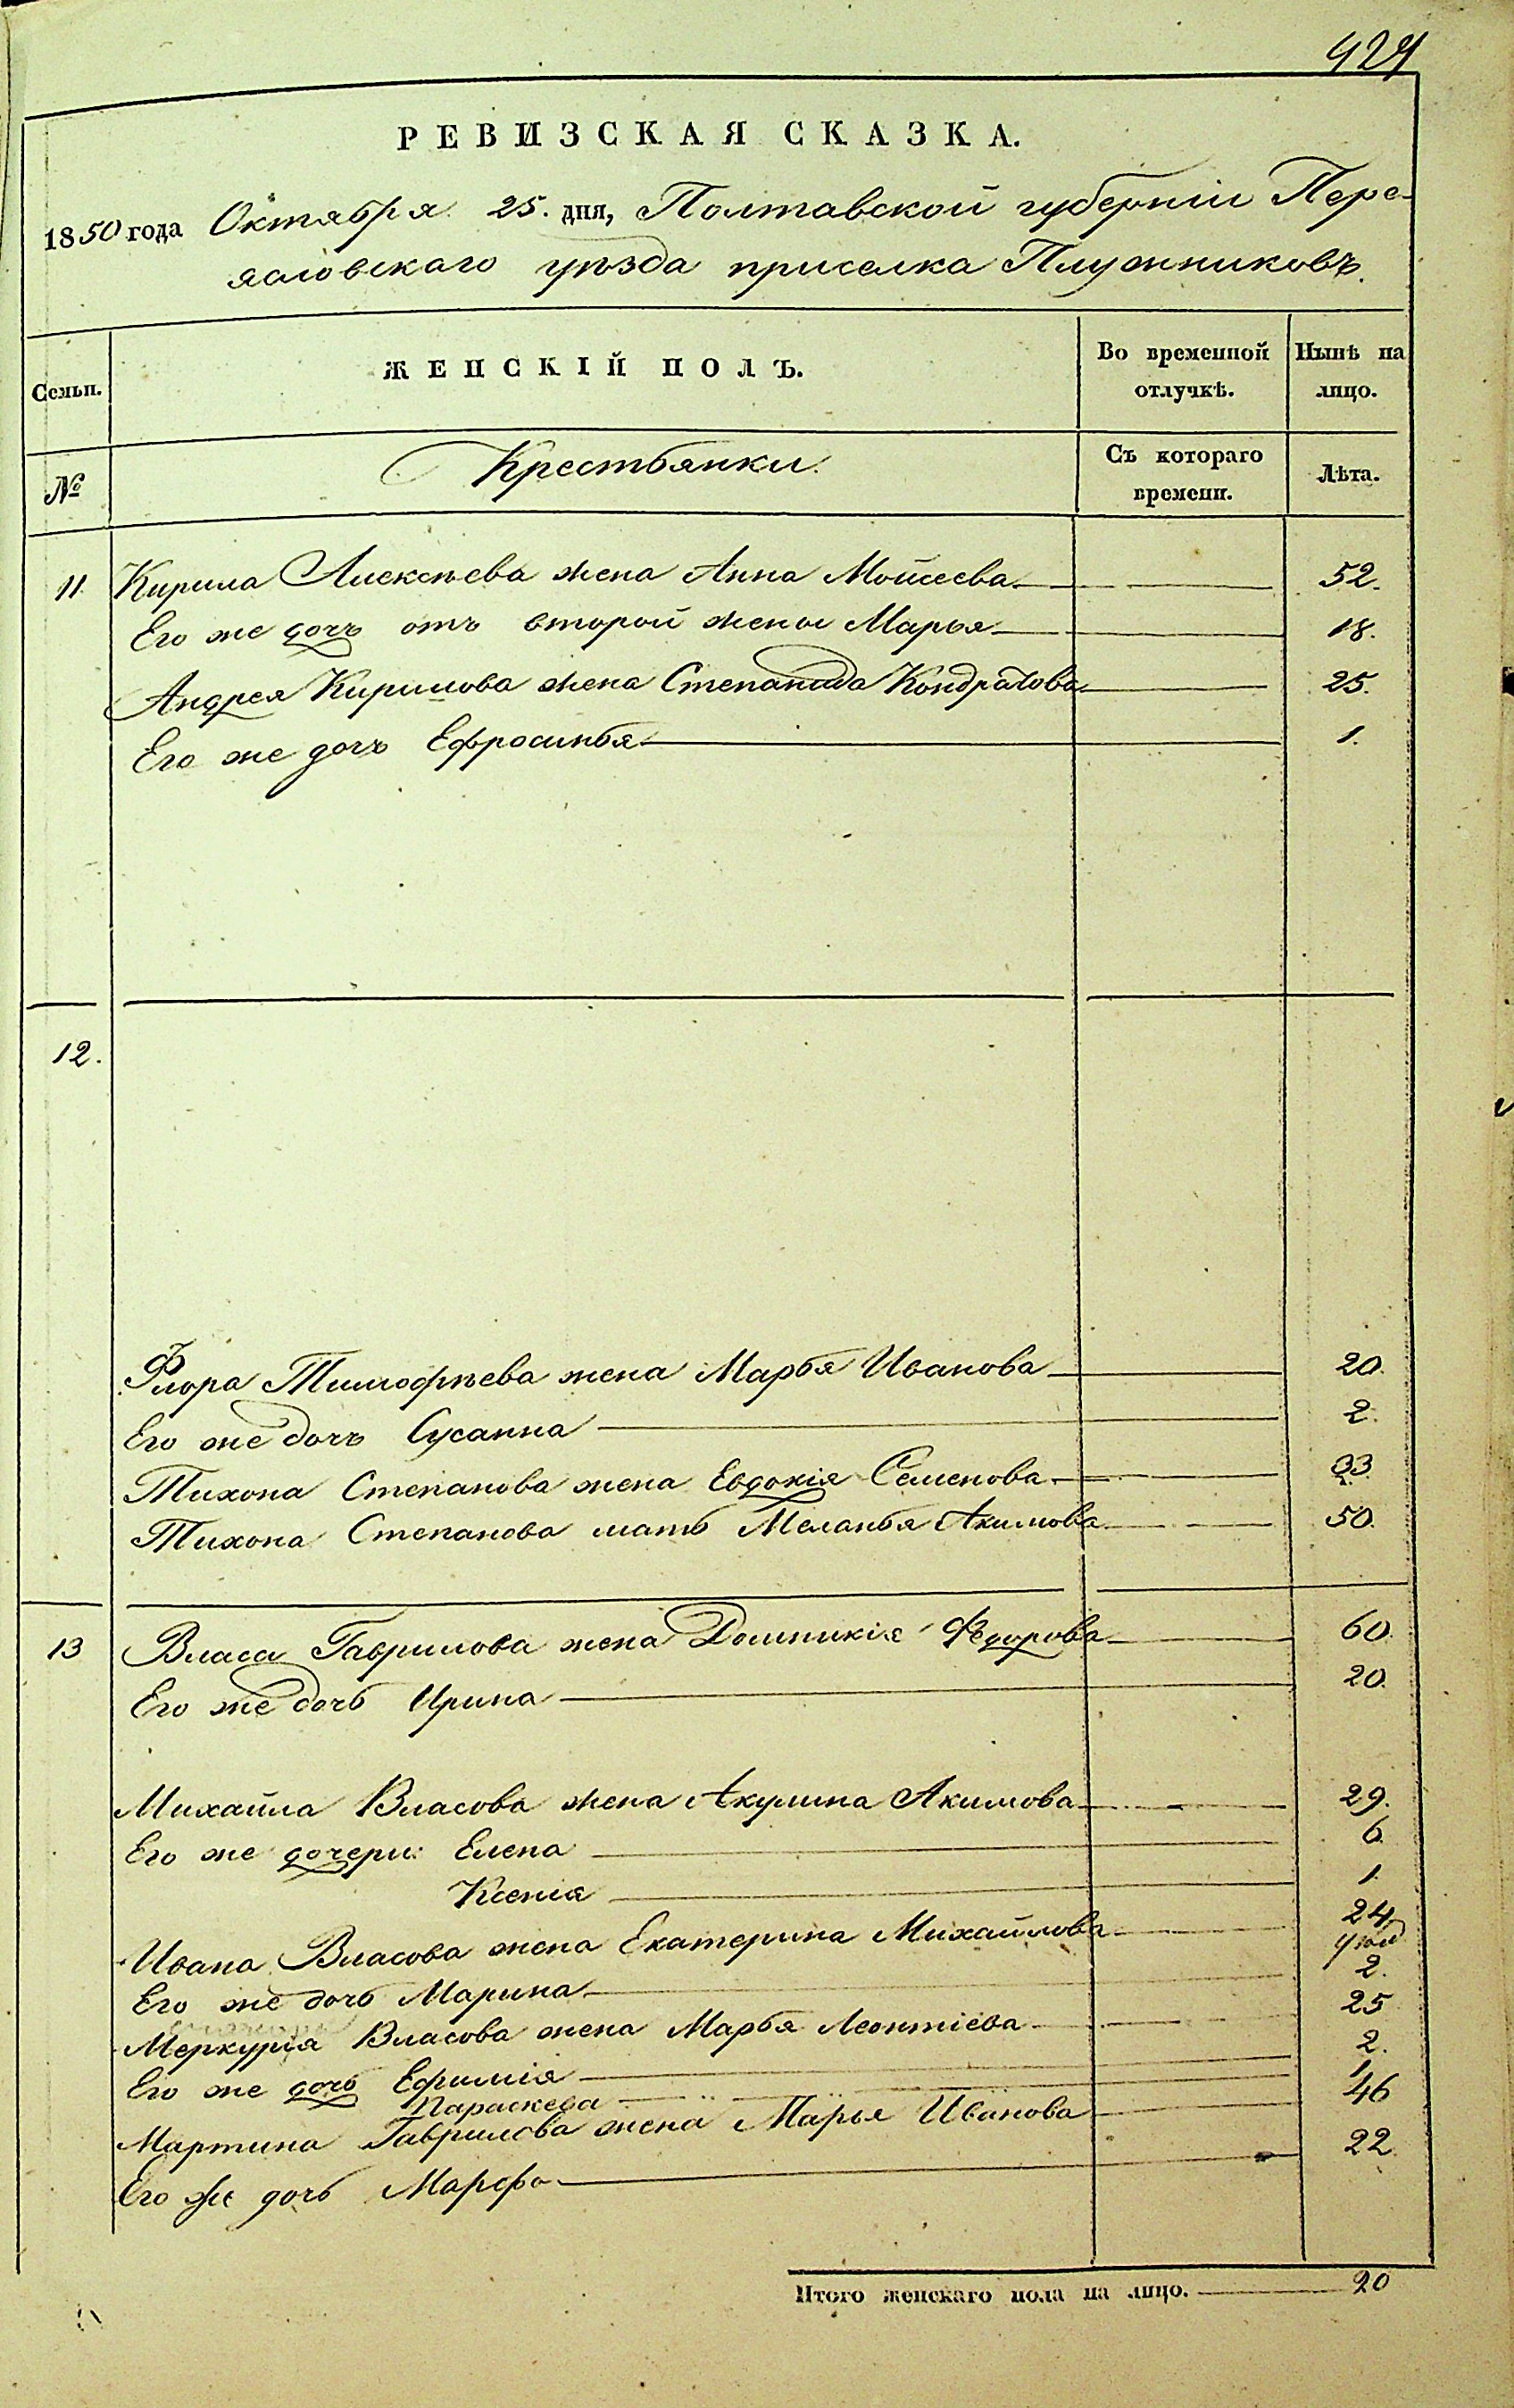 424
РЕВИЗСКАЯ СКАЗКА.
1850 года Октября 25. дня, Полтавской губерніи Пере-
ясловскаго уѣзда приселка Плужниковъ.
Семьи. ЖЕНСКІЙ ПОЛЪ. Во временной отлучкѣ. Нынѣ на лицо.
№ Крестьянки. Съ котораго времени. Лѣта.
11. Кирила Алексѣева жена Анна Мойсеева 52.
Его же дочь отъ второй жены Марья 18.
Андрея Кирилова жена Степанида Кондратова 25.
Его же дочь Ефросинья 1.
12.
Флора Тимофѣева жена Марья Иванова 20.
Его же дочь Сусанна 2.
Тихона Степанова жена Евдокія Семенова 33.
Тихона Степанова мать Меланья Акимова 50.
13 Власа Гаврилова жена Домникія Федорова 60.
Его же дочь Ирина 20.
Михайла Власова жена Акулина Акимова 29.
Его же дочери: Елена 6.
Ксенія 1.
Ивана Власова жена Екатерина Михайлова 24
Его же дочь Марина
Меркурія Власова жена Марья Леонтіева 25
Его же дочь Ефимія 2.
Параскева 1
Мартина Гаврилова жена Марья Иванова 46
Его же дочь Марфа 22.
Итого женскаго пола на лицо. 20